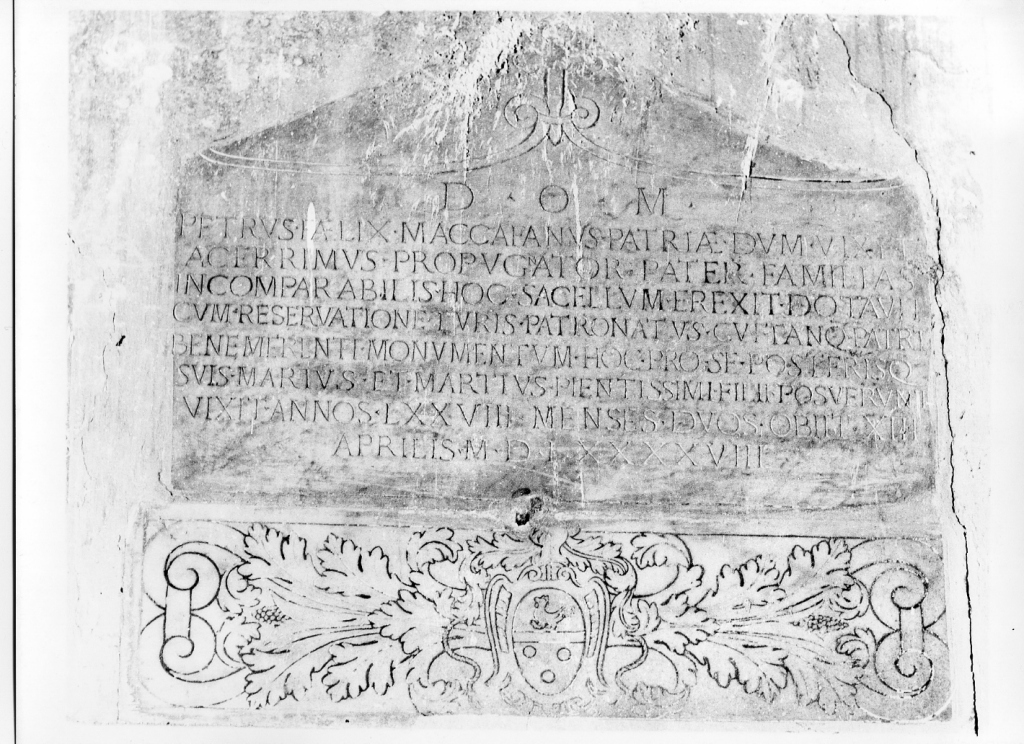 D · O · M ·
PETRVS·FÆLIX·MACCAIANVS·PATRIÆ·DVM·VIX·
ACERRIMVS·PROPVGÑATOR·PATER·FAMILIAS
INCOMPARABILIS·HOC·SACELLVM·EREXIT·DOTAVIT
CVM·RESERVATIONE·IVRIS·PATRONATVS·CVI·TANQ·PATRI
BENEMERENTI·MONVMENTVM·HOC·PRO·SE·POSTERISQ
SVIS·MARIVS·ET·MARTIVS·PIENTISSIMI·FILII·POSVERVNT
VIXIT·ANNOS·LXXVIII·MENSES·DVOS·OBIIT·XIII
APRILIS·M·D·LXXXXVIII